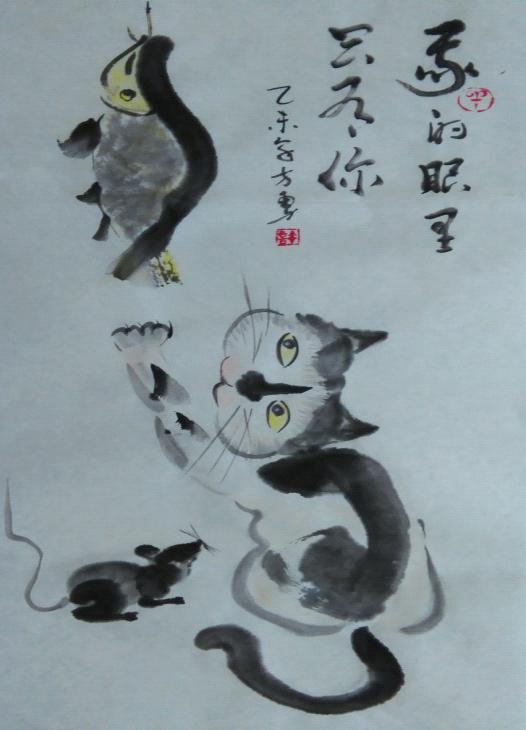 我的眼里
只有你
乙未年方勇